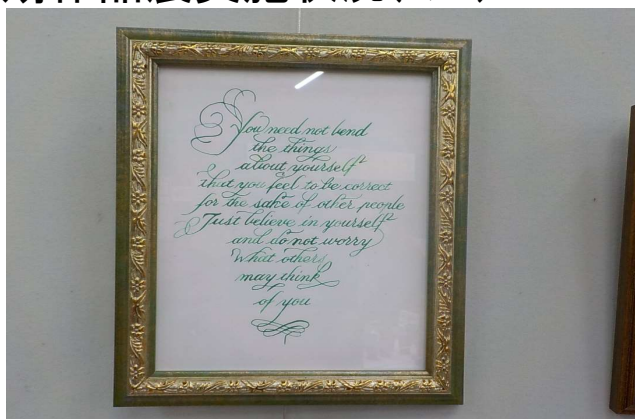 You need not bend
the things
about yourself
that you feel to be correct
for the sake of other people
Just believe in yourself
and do not worry
What others
may think
of you